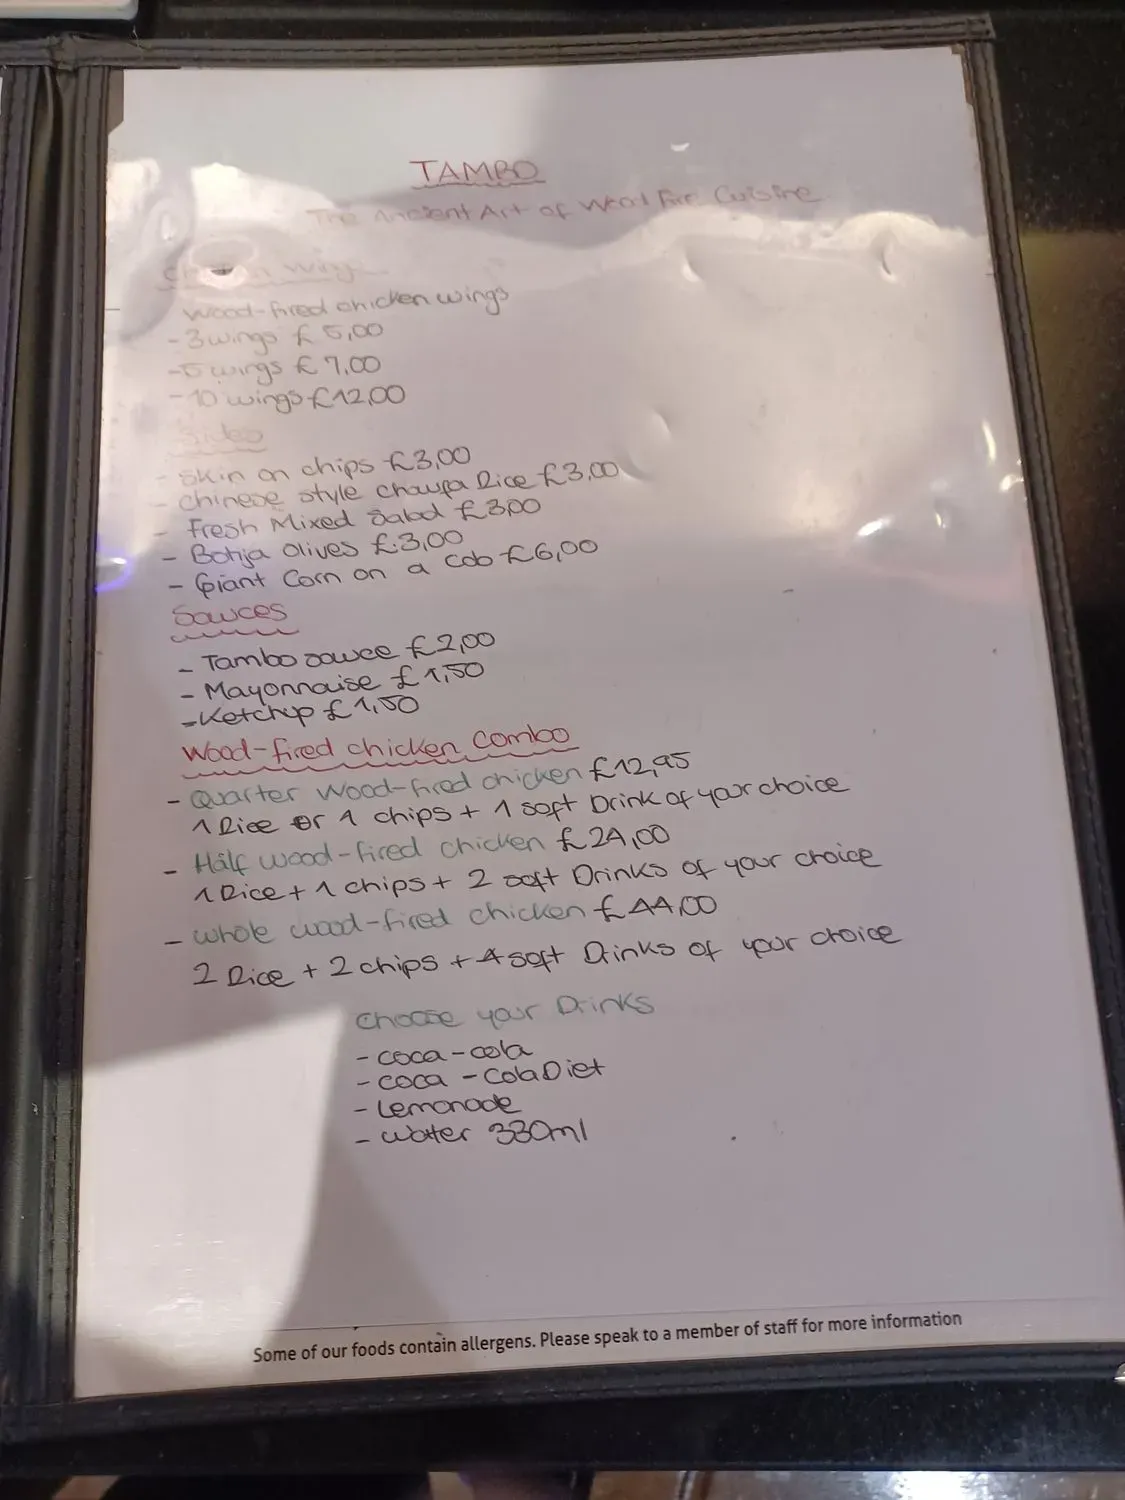 TAMBO
The Ancient Art of Wood Fire Cuisine
Chicken Wings
Wood-fired chicken wings
- 3 wings £5,00
- 5 wings £7,00
- 10 wings £12,00
Sides
- Skin on chips £3,00
- Chinese style chaufa Rice £3,00
- Fresh Mixed Salad £3,00
- Botija Olives £3,00
- Giant Corn on a cob £6,00
Sauces
- Tambo sauce £2,00
- Mayonnaise £1,50
- Ketchup £1,50
Wood-fired chicken Combo
- Quarter Wood-fired chicken £12,95
1 Rice or 1 chips + 1 soft Drink of your choice
- Half wood-fired chicken £24,00
1 Rice + 1 chips + 2 soft Drinks of your choice
- Whole wood-fired chicken £44,00
2 Rice + 2 chips + 4 soft Drinks of your choice
Choose your Drinks
- coca-cola
- coca - Cola Diet
- Lemonade
- Water 330ml
Some of our foods contain allergens. Please speak to a member of staff for more information